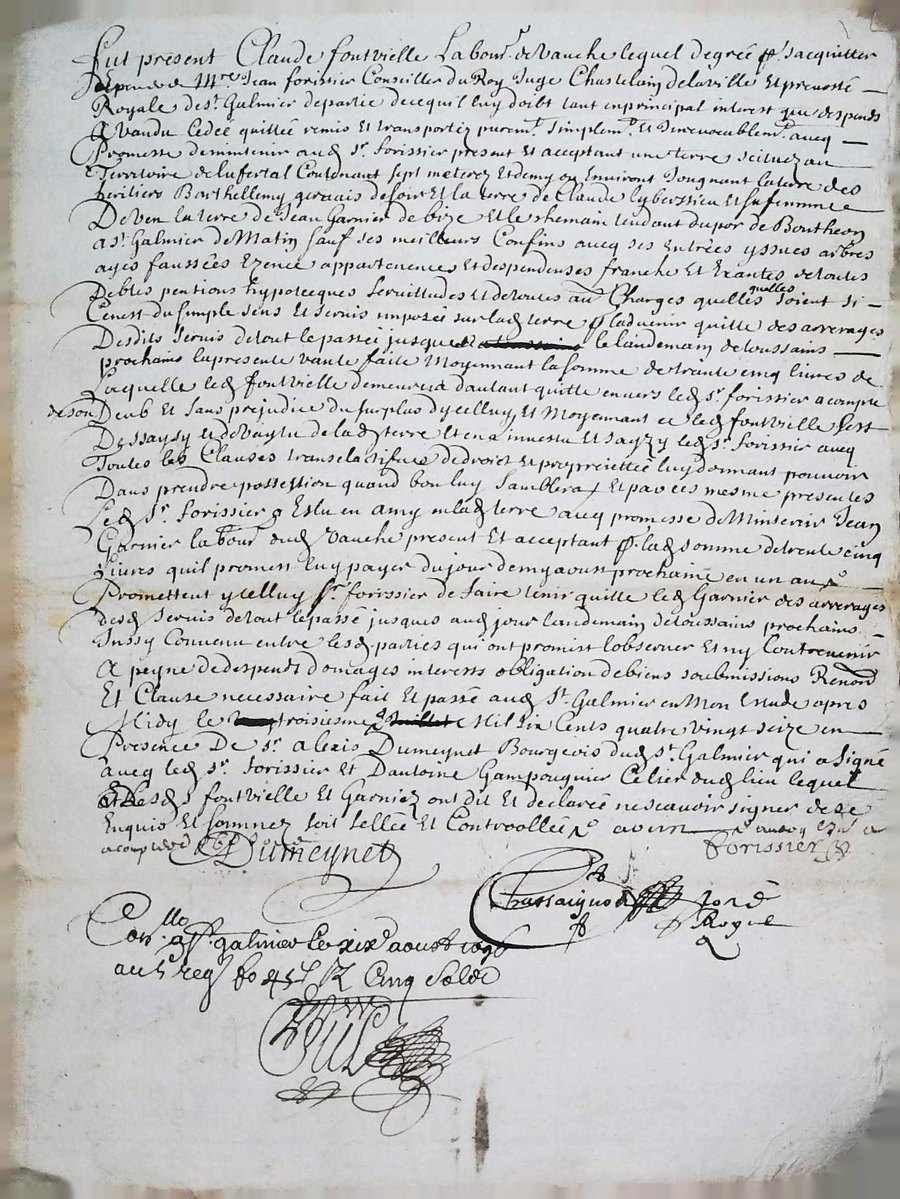 Fut present Claude fontvielle Labour.r de Vauche lequel de gree p.r sacquitter
de M.re Jean forissier Conseiller du Roy Juge Chastelain de la ville Et prevosté
Royale de S.t Galmier de partie de ce quil luy doibt tant en principal interest que despends
A vandu Cedée quittée remis Et transportéz purem.t simplem.t Et Inrevocablem.t avecq
Promesse de mintenir aud S.r forissier present Et acceptant une terre scituez au
Territoire de la fertal Contenant sept meterez Et demy ou Environt Jougnant la terre des
heritiers Barthellemy gervais de soir Et la terre de Claude Et sa femme
De ven la terre de Jean Garnier de bize Et le chemain tendant du por de Bontheon
a S.t Galmier de Matin sauf ses meilleurs Confins avecq ses Entrées yssues arbres
ayes faussées appartenences Et despendences franche Et Exantes de toutes
Debtes pentions hypotecques servittudes Et de toutes au.s Charges quelles quelles soient si
Cenest du simple sens Et servis imposée sur lad terre p.r ladvenir quitte des arrerages
Desdits servis de tout le passée jusque le landemain de toussains
prochains la presente vante faite Moyennant la somme de trante cinq livres de
Laquelle led fontvielle demeurera dautant quitte envers led S.r forissier a compte
de son Deub Et sans prejudice du surplus dycelluy, Et Moyennant ce led fontvielle sest
Dessaysy Et devaytu de lad terre Et en a investu Et sayzy led S.r forissier avecq
Toutes les Clauses translatifves de droict Et propriettée luy donnant pouvoir
Dans prendre possession quand bon luy samblera, Et par ces mesme presentes
Led S.r forissier a Eslu en amy en lad terre avecq promesse de Mintenir Jean
Garnier labour.r dud Vauche present Et acceptant p.r lad somme de trente cinq
Livres quil promest luy payer du jour de my aoust prochaine en un an
Promettent ycelluy S.r forissier de faire tenir quitte led Garnier des arrerages
desd servis de tout le passé jusques aud jour landemain de toussains prochains
Inssy Convenu entre lesd parties qui ont promist lobserver Et ny Contrevenir
A peyne de despends domages interests obligation de biens soubmissions Renon.
Et Clause necessaire fait Et passé aud S.t Galmier en Mon Estude apres
Midy le troisiesme Mil six Cents quatre vingt seize en
Presence De S.r alexis Dumeynet Bourgeois dud S.t Galmier qui a signé
avecq led S.r forissier Et Dantoine Celier dud lieu lequel
Et lesd fontvielle Et Garnier ont dit Et declarée ne scavoir signer de ce
Enquis Et somnez soit sellée Et Controollée
Dumeynet
forissier
Chassaignon
no.re
Royal
Con.llé a S.t galmier le xix.e aoust 1696
au 5 reg fo 45 R Cinq Solz